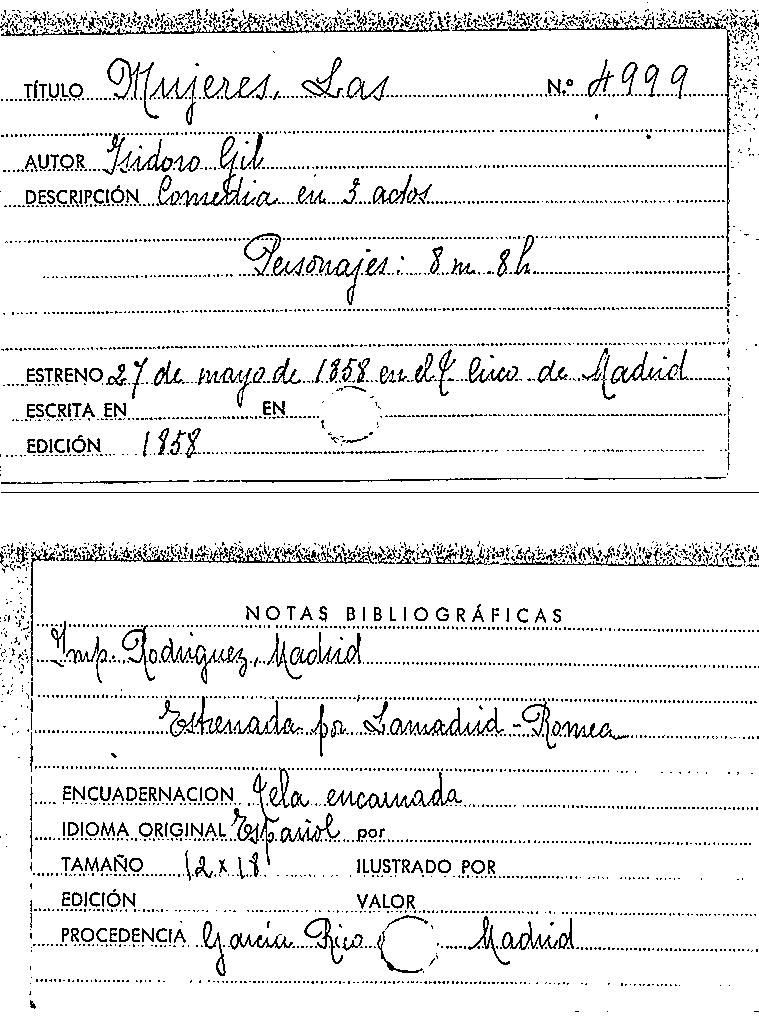 TÍTULO Mujeres, Las N.º 4999
AUTOR Isidoro Gil
DESCRIPCIÓN Comedia en 3 actos
Personajes: 8 m. 8 h.
ESTRENO 27 de mayo de 1858 en el T. Circo de Madrid
ESCRITA EN EN
EDICIÓN 1858
NOTAS BIBLIOGRÁFICAS
Imp. Rodriguez, Madrid
Estrenada por Lamadrid - Romea
ENCUADERNACION Tela encarnada
IDIOMA ORIGINAL Español por
TAMAÑO 12 x 18 ILUSTRADO POR
EDICIÓN VALOR
PROCEDENCIA García Rico Madrid